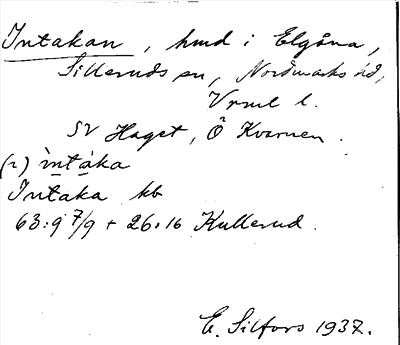 Intakan, hmd i Elgåna,
Silleruds sn, Nordmarks hd,
Vrml l.
SV Haget, Ö Kvarnen.
(2) ìntàka
Intaka kb
63:9 7/9 + 26:16 Kullerud.
E. Silfors 1937.